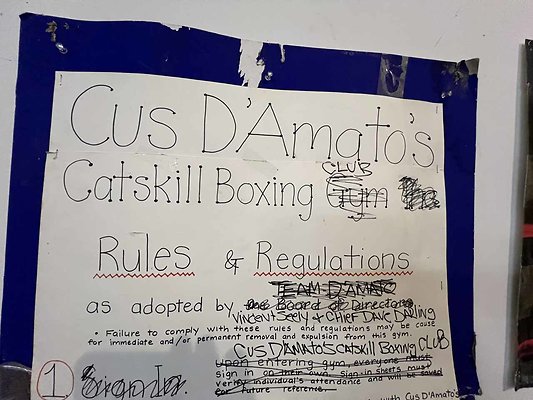 Cus D'Amato's
CLUB
Catskill Boxing Gym
Rules & Regulations
TEAM D'AMATO
as adopted by the Board of Directors
Vincent Seely & CHIEF DAVE DARLING
• Failure to comply with these rules and regulations may be cause
for immediate and/or permanent removal and expulsion from this gym.
CUS D'AMATO'S CATSKILL Boxing CLUB
Upon entering gym, everyone must
1. Sign In.
sign in on their own. Sign-in sheets must
verify individual's attendance and will be saved
for future reference.
with Cus D'Amato's